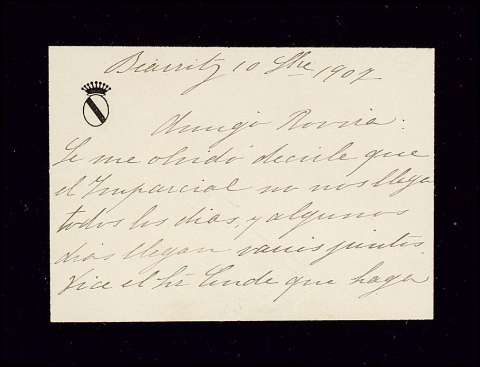 Biarritz 10 Sbre 1902
Amigo Rovira:
Se me olvidó decirle que
el Imparcial no nos llega
todos los dias, y algunos
dias llegan varios juntos.
Dice el Sr Conde que haga